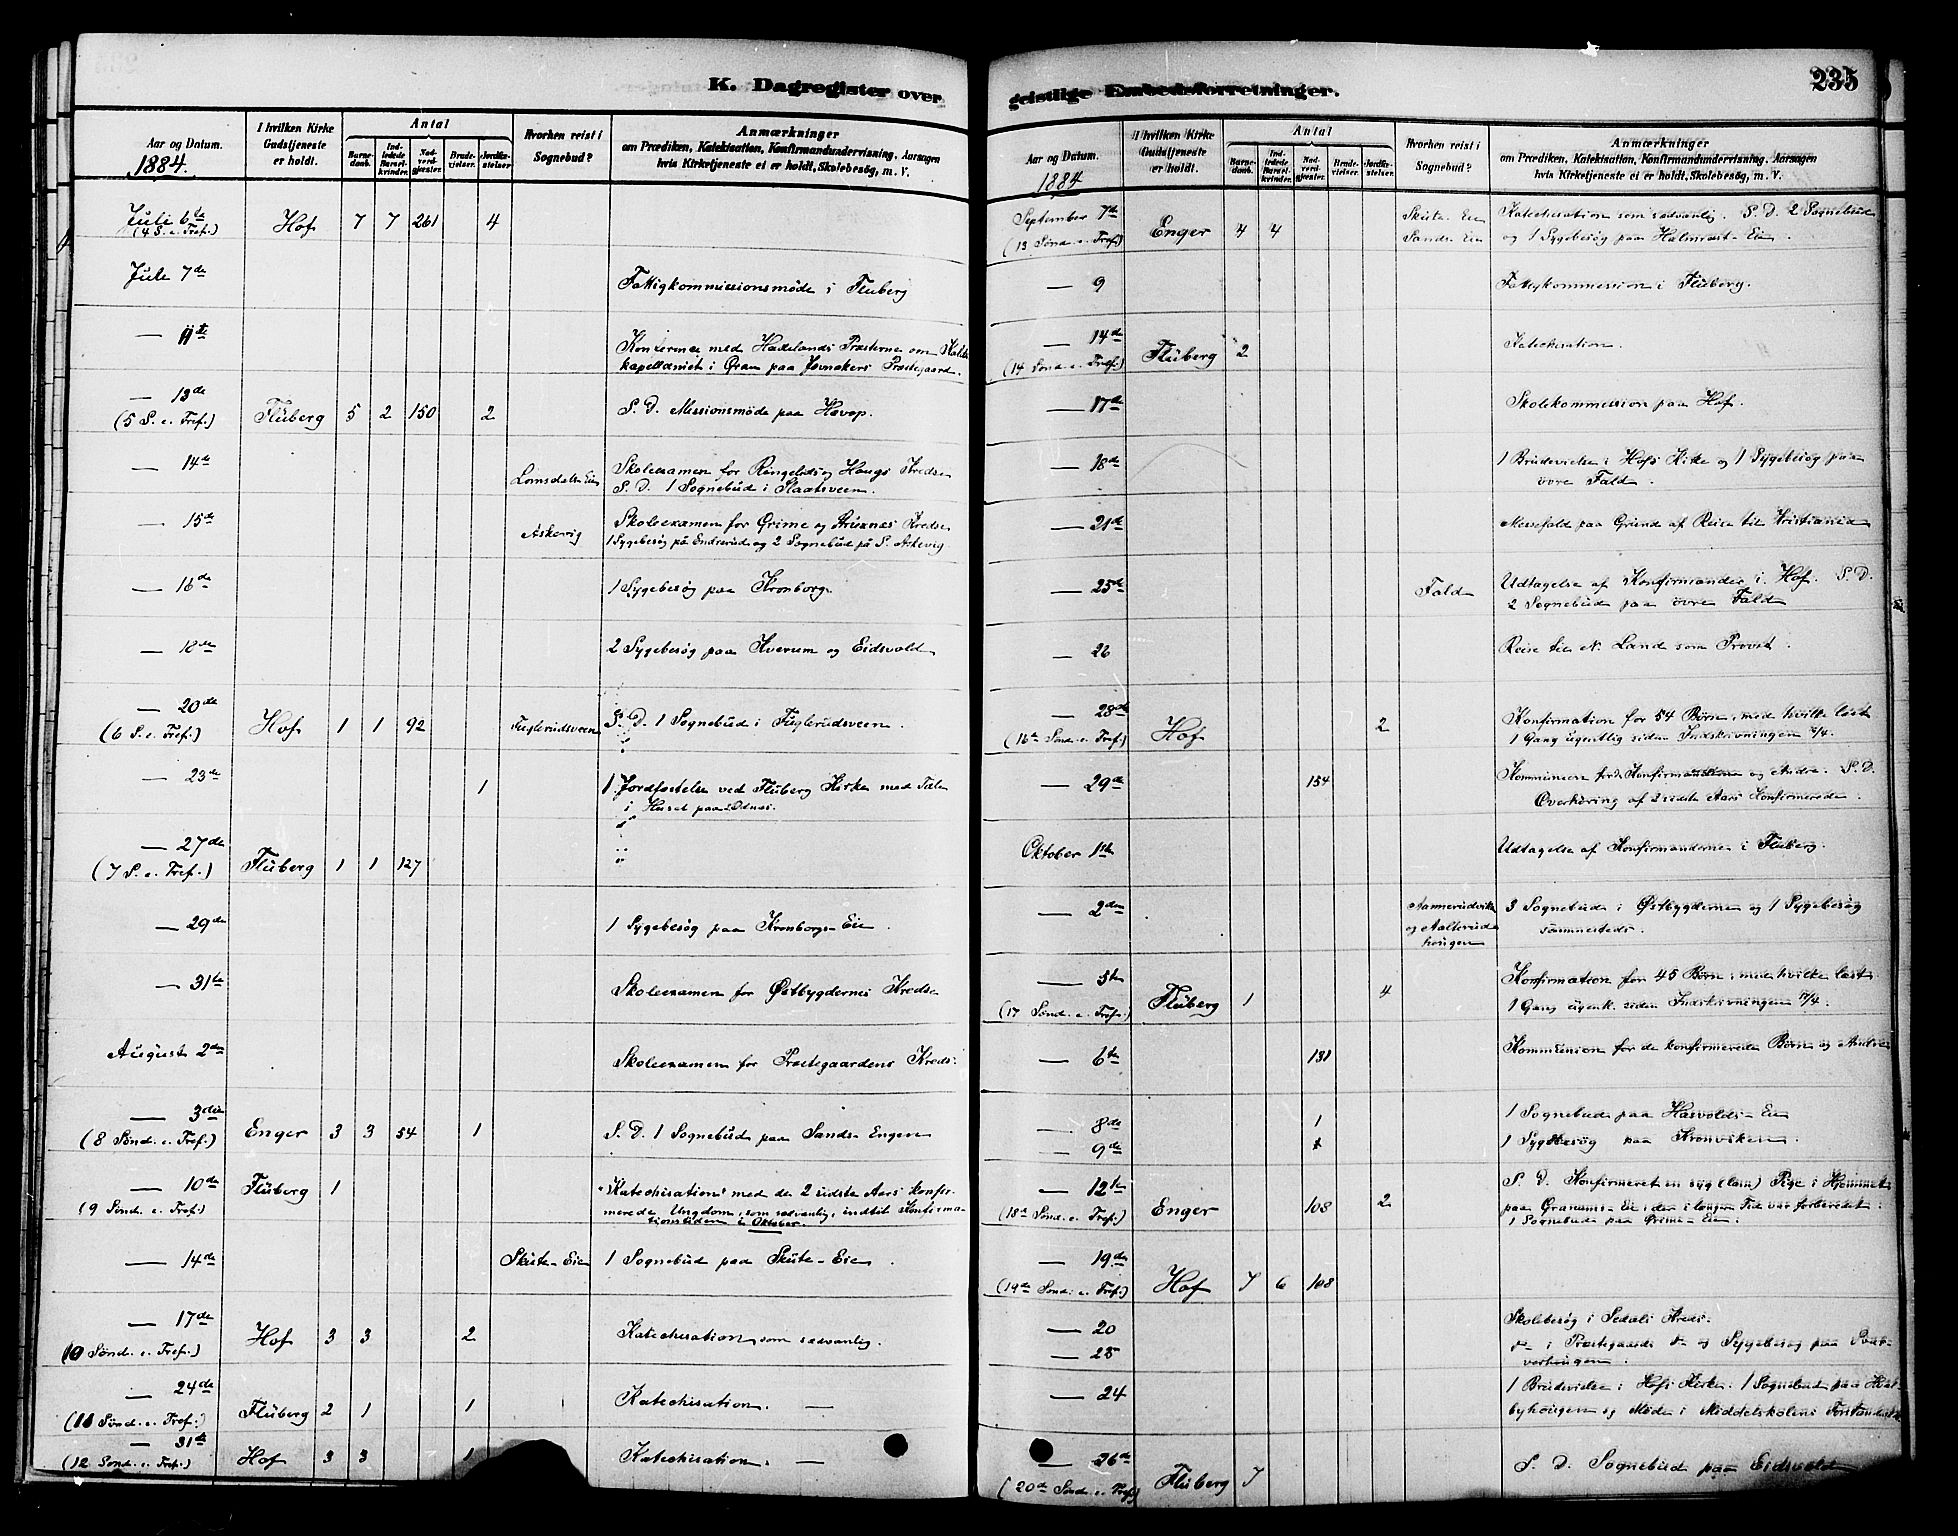 K. Dagregister over
Aar og Datum.
1884.
I hvilken Kirke Gudstjeneste er holdt.
Antal
Barnedaab.
Indledede Barselkvinder.
Nadverdgjæster.
Brudevielser.
Jordfæstelser.
Hvorhen reist i Sognebud?
Anmærkninger
om Prædiken, Katekisation, Konfirmandundervisning, Aarsagen
hvis Kirketjeneste ei er holdt, Skolebesøg, m. V.
Juli 6te
(4 S. e. Tref.) Hof 7 7 261 4
Jule 7de Fattigkommissionsmöde i Fluberg
— 11te med Hadelands Præsterne om
kapellaniet i Gran paa Jevnakers Præstegaard.
— 13de
(5 S. e. Tref.) Fluberg 5 2 150 2 S. D. Missionsmöde paa
— 14de Lomsdals Eie Skoleexamen for Ringelids og Haugs Kredse
S. D. 1 Sognebud i Slaatsveen.
— 15de Askevig Skoleexamen for Grime og Kredse
1 Sygebesøg på Endrerud og 2 Sognebud på S. Askevig
— 16de 1 Sygebesøg paa Kronborg
— 18de 2 Sygebesøg paa Kverum og Eidsvold
— 20de
(6 S. e. Tref.) Hof 1 1 92 Fuglerudsveen S. D. 1 Sognebud i Fuglerudsveen.
— 23de 1 1 Jordfæstelse ved Fluberg Kirke med Tale
i Huset paa Odnæs.
— 27de
(7 S. e. Tref.) Fluberg 1 1 127
— 29de 1 Sygebesøg paa Kronborgs-Eie.
— 31te Skoleexamen for Østbygdernes Kredse
August 2den Skoleexamen for Præstegaardens Kreds.
— 3die
(8 Sønd. e. Tref.) Enger 3 3 54 1 S. D. 1 Sognebud paa Sands-Engen
— 10de
(9 Sønd. e. Tref.) Fluberg 1 "Katechisation" med de 2 sidste Aars konfir-
merede Ungdom, som sædvanlig, indtil Konfirma-
tionstiden i Oktober.
— 14de Skute-Eie 1 Sognebud paa Skute-Eie.
— 17de
(10 Sønd. e. Tref.) Hof 3 3 2 Katechisation som sædvanlig.
— 24de
(11 Sønd. e. Tref.) Fluberg 2 1 1 Katechisation. —
— 31te
(12 Sønd. e. Tref.) Hof 3 3 1 Katechisation. —
geistlige Embedsforretninger.
235
Aar og Datum.
1884
I hvilken Kirke Gudstjeneste er holdt.
Antal
Barnedaab.
Indledede Barselkvinder.
Nadverdgjæster.
Brudevielser.
Jordfæstelser.
Hvorhen reist i Sognebud?
Anmærkninger
om Prædiken, Katekisation, Konfirmandundervisning, Aarsagen
hvis Kirketjeneste ei er holdt, Skolebesøg, m. V.
September 7de
(13 Sønd. e. Tref.) Enger 4 4 Skute Eie
Sands-Eie Katechisation som sædvanlig. S. D. 2 Sognebud
og 1 Sygebesøg paa Halmrast-Eie.
— 9 Fattigkommission i Fluberg.
— 14de
(14 Sønd. e. Tref.) Fluberg 2 Katechisation.
— 17de Skolekommission paa Hof.
— 18de 1 Brudevielse i Hofs Kirke og 1 Sygebesøg paa
övre Fald.
— 21de Messefald paa Grund af Reise til Kristiania
— 25de Fald Udtagelse af Konfirmander i Hof. S. D.
2 Sognebud paa övre Fald
— 26 Reise til N. Land som Provst.
— 28de
(16de Sønd. e. Tref.) Hof 2 Konfirmation for 54 Børn, med hvilke læst
1 Gang ugentlig siden Indskrivningen
— 29de 154 Kommunion for Konfirmanderne og Andre. S. D.
Overhøring af 2 sidste Aars Konfirmerede.
Oktober 1ste Udtagelse af Konfirmanderne i Fluberg.
— 2den og 3 Sognebud i Østbygderne og 1 Sygebesøg
sammesteds.
— 5te
(17 Sønd. e. Tref.) Fluberg 1 4 Konfirmation for 45 Børn, med hvilke læst
1 Gang ugentl. siden Indskrivningen
— 6te 131 Kommunion for de konfirmerede Børn og Andre
— 8de 1 1 Sognebud paa Hasvolds-Eie
— 9de 1 Sygebesøg paa Kronviken.
— 12te
(18de Sønd. e. Tref.) Enger 108 2 S. D. Konfirmeret en syg (lam) Pige i Hjemmet
paa Granums-Eie, der i længere Tid var forberedet.
1 Sognebud paa Grime-Eie.
— 19de
(19de Sønd. e. Tref.) Hof 7 6 108
— 20 Skolebesøg i Kreds.
— 23 do i Præstegaards do og Sygebesøg paa
— 24 1 Brudevielse i Hofs Kirke. 1 Sognebud paa
byhougen og Møde i Middelskolens Forstanderskab
— 26de
(20de Sønd. e. Tref.) Fluberg 7 S. D. Sognebud paa Eidsvold